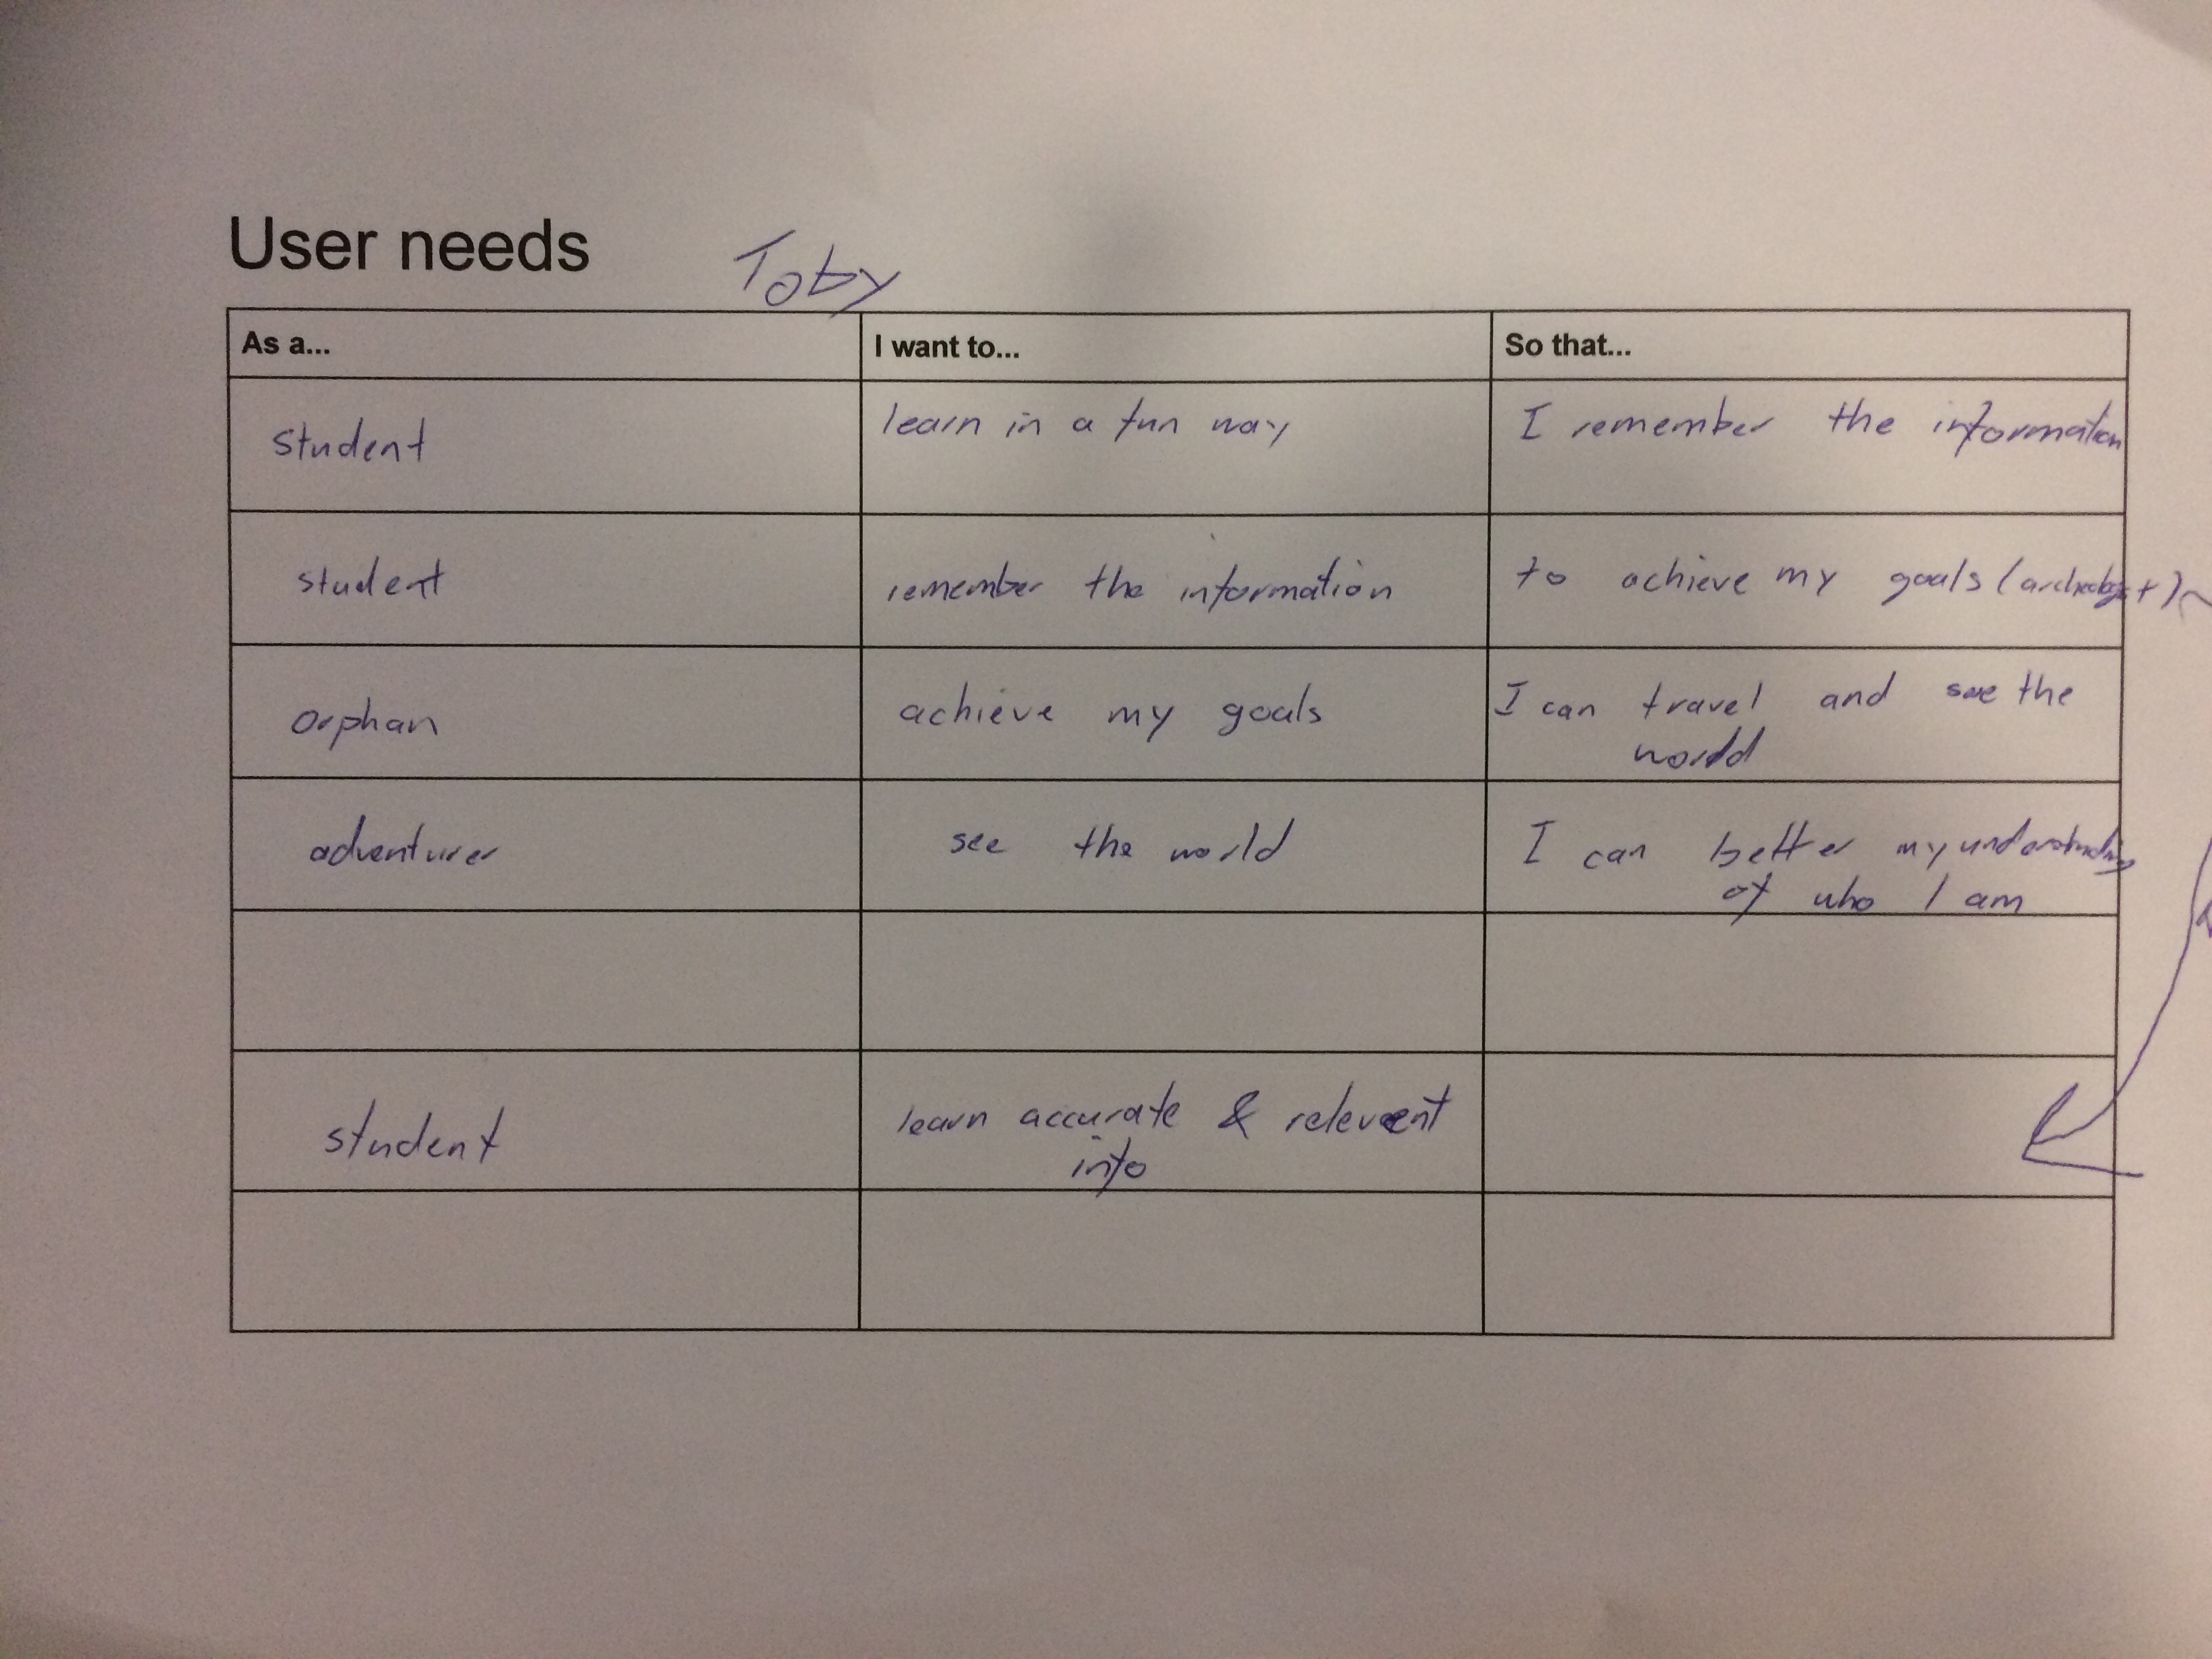 User needs
Toby
As a... I want to... So that...
student learn in a fun way I remember the information
student remember the information to achieve my goals (archeologist)
orphan achieve my goals I can travel and see the
world
adventurer see the world I can better my understanding
of who I am
student learn accurate & relevent
info